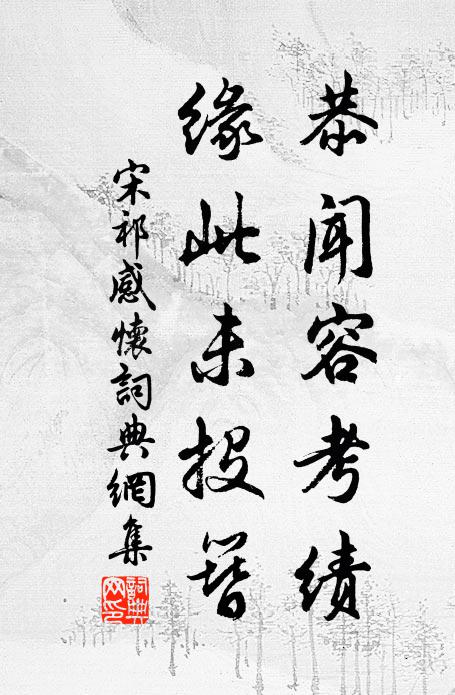 恭闻容考绩
缘此未投簪
宋祁感懷詞典網集
詞典網印